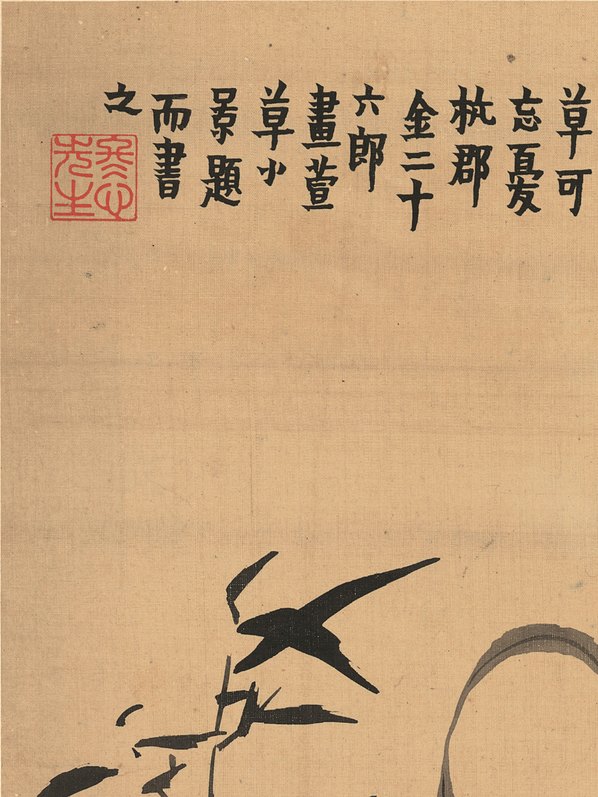 草可
忘憂
杭郡
金二十
六郎
畫萱
草小
景題
而書
之
冬心先生